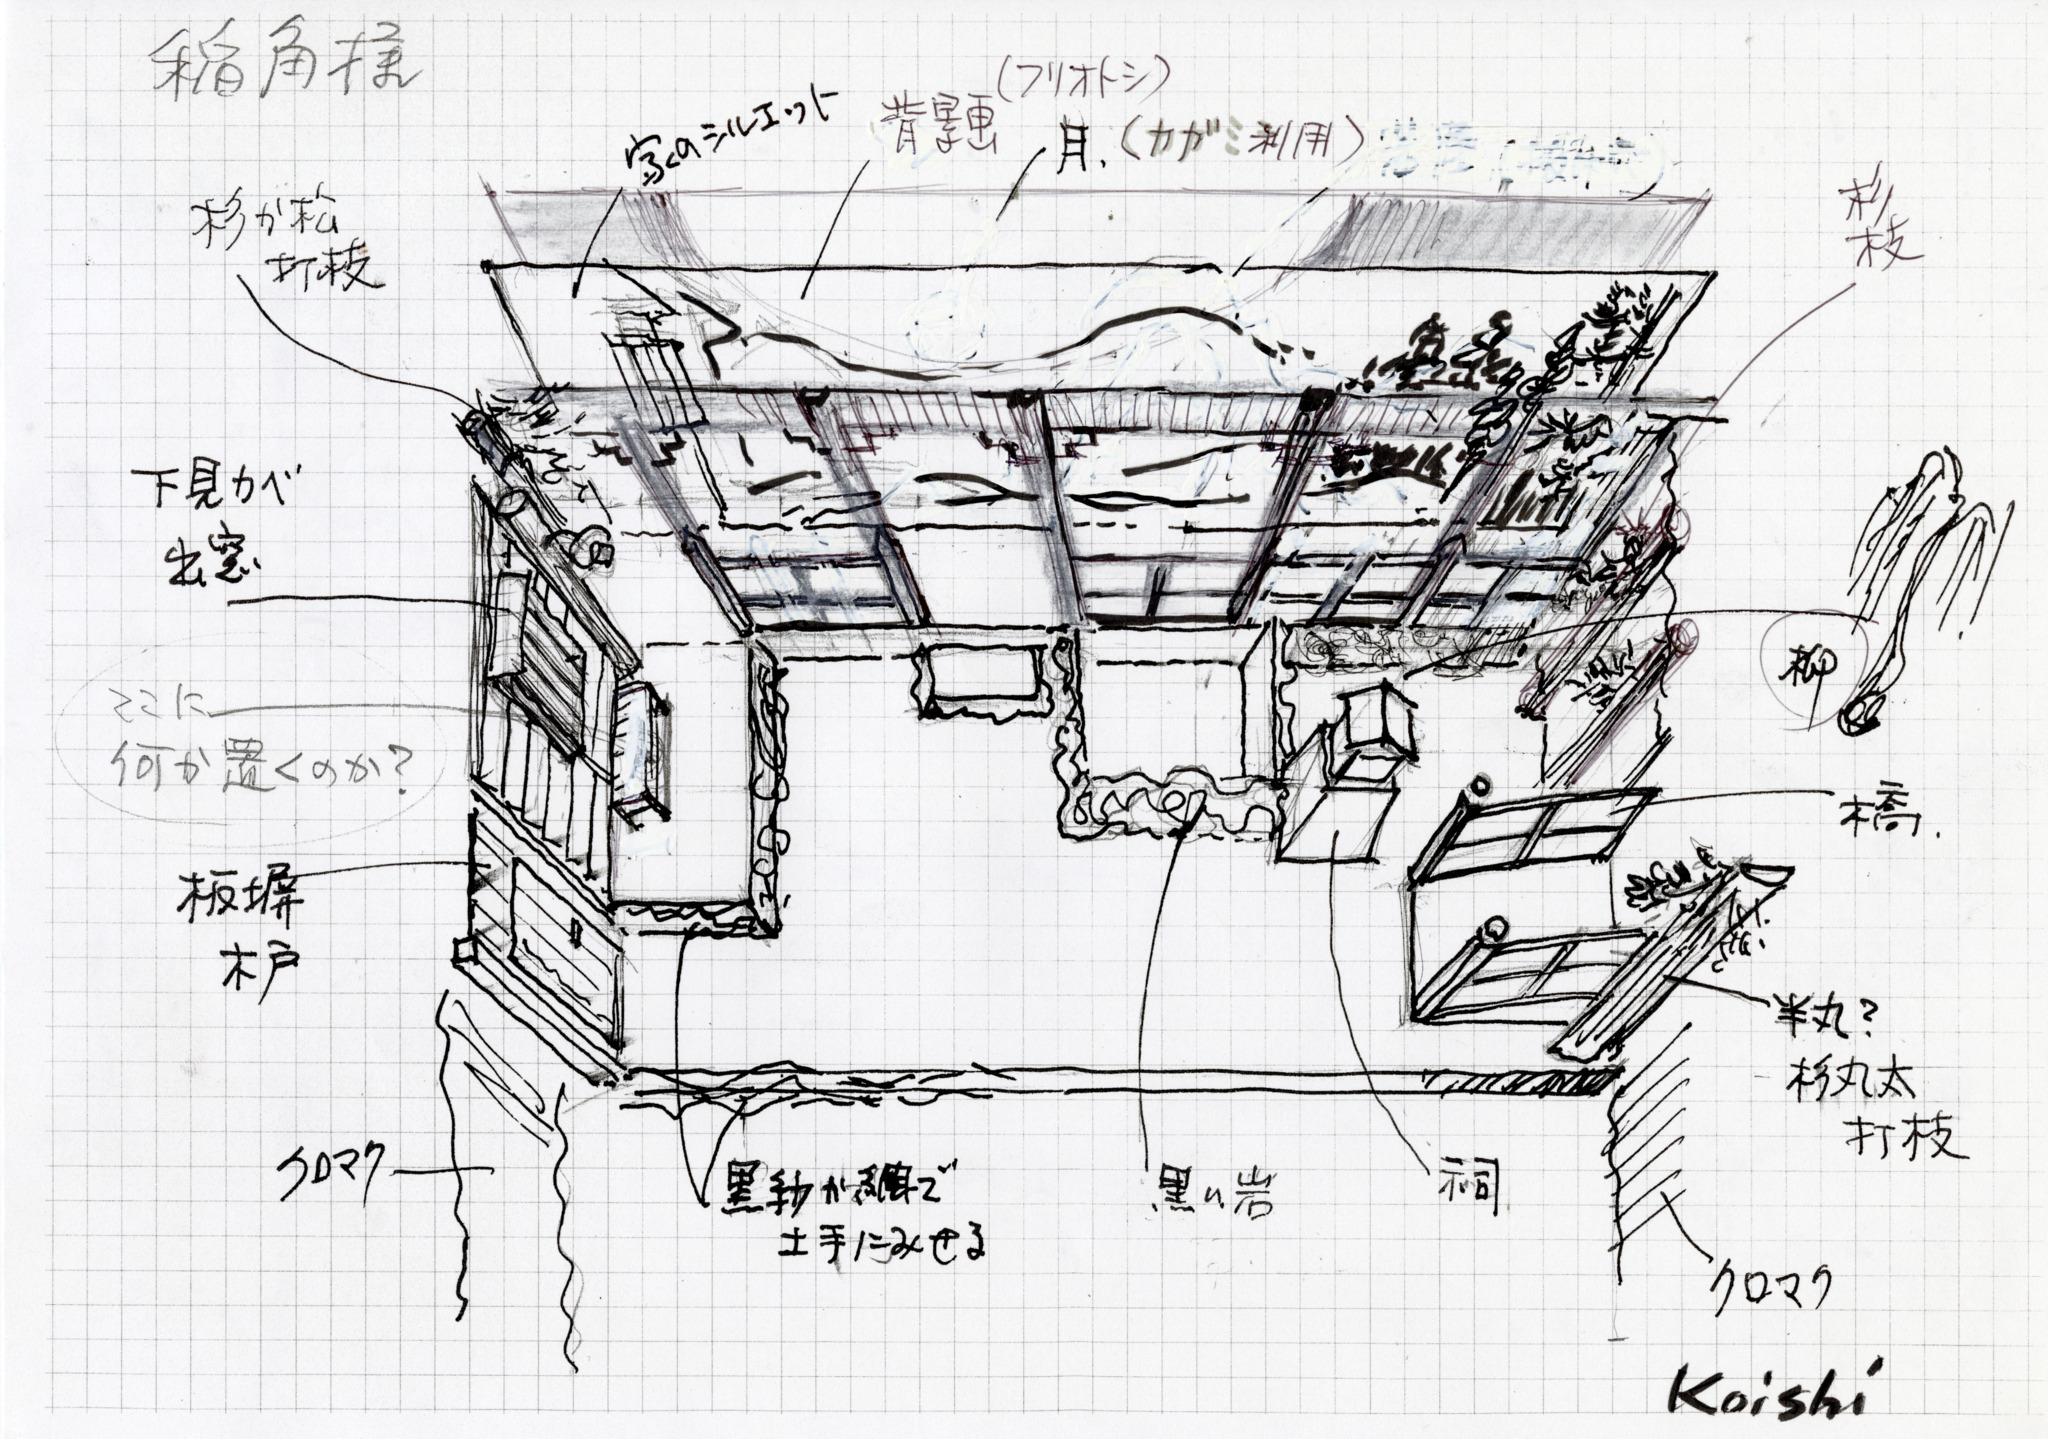 稲角様
家のシルエット
背景画
(フリオトシ)
月.(カガミ利用)
杉か松
打枝
杉
枝
下見カベ
出窓
柳
ここに
何か置くのか?
橋.
板塀
木戸
半丸?
杉丸太
打枝
クロマク
黒
土手にみせる
黒い岩
祠
クロマク
Koishi